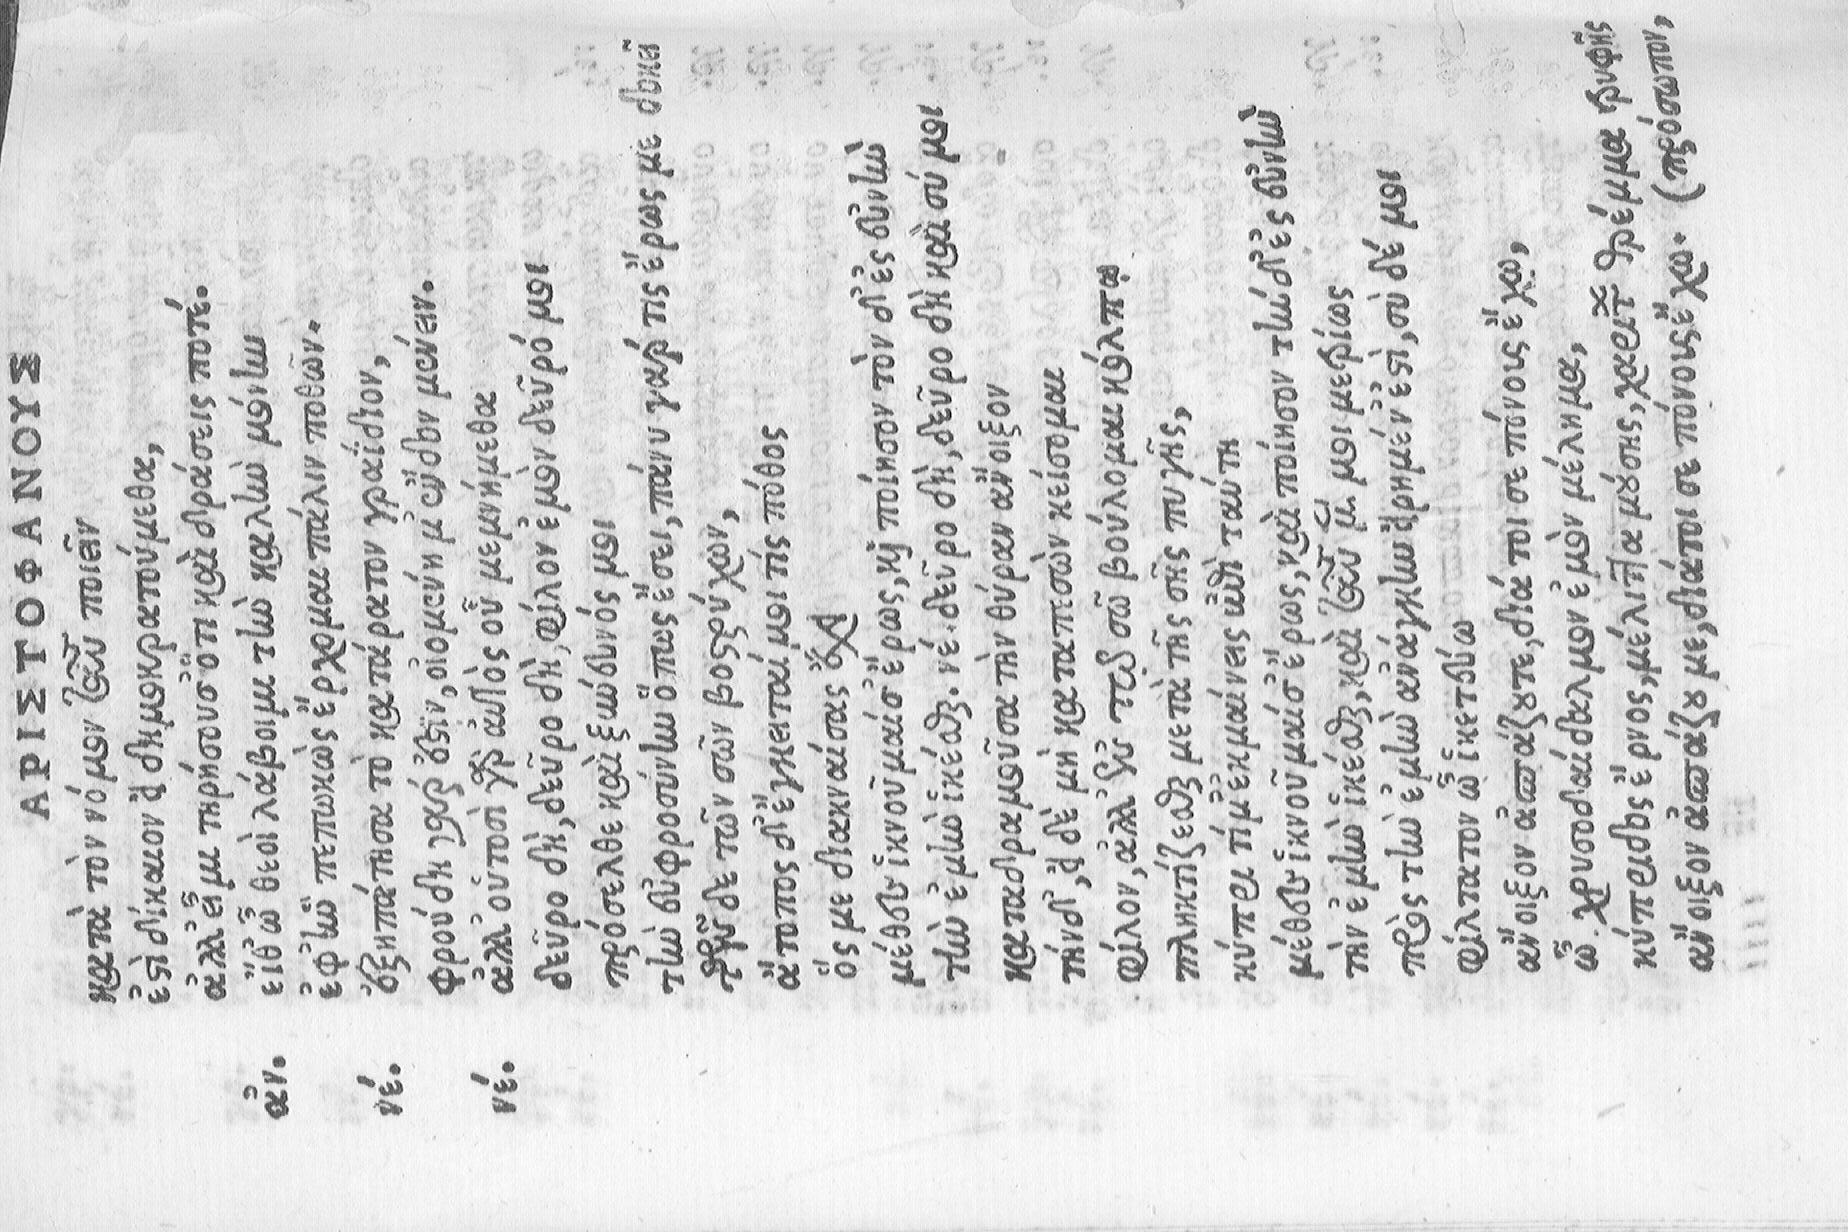 ΑΡΙΣΤΟΦΑΝΟΥΣ
κατὰ τὸν νόμον ταῦτα ποιεῖν
ἐστὶ δίκαιον εἰ δημοκρατούμεθα,
ἀλλ' εἶμι τηρήσουσ' ὅτι καὶ δράσεις ποτέ.
αν. εἴθ' ὦ θεοὶ λάβοιμι τὴν καλὴν μόνην
ἐφ' ἣν πεπωκὼς ἔρχομαι πάλιν ποθῶν.
νέ. ἐξηπάτησα τὸ κατάρατον γραΐδιον,
φρούδη γάρ ἐστιν, οἰομένη μ' ἔνδον μένειν.
νέ. ἀλλ' οὑτοσὶ γὰρ αὐτὸς οὗ μεμνήμεθα
δεῦρο δὴ, δεῦρο δὴ, φίλον ἐμὸν δεῦρό μοι
πρόσελθε καὶ ξυνευνός μοι
τὴν εὐφροσύνην ὅπως ἔσει, πάνυ γάρ τις ἔρως με δονεῖ
τῶνδε τῶν σῶν βοστρύχων,
ἄτοπος δ' ἔγκειταί μοι τίς πόθος
ὅς με διακναίσας ἔχει
μέθες ἱκνοῦμαί σ' ἔρως, καὶ ποίησον τὸν δ' ἐς εὐνὴν
τὴν ἐμὴν ἱκέσθαι. νέ. δεῦρο δὴ, δεῦρο δὴ καὶ σύ μοι
καταδραμοῦσα τὴν θύραν ἄνοιξον
τήνδ', εἰ δὲ μὴ καταπεσὼν κείσομαι
φίλον, ἀλλ' ἐν τῷ σῷ βούλομαι κόλπῳ
πληκτίζεσθαι μετὰ τῆς σῆς πυγῆς,
κύπρι τί μ' ἐκμαίνεις ἐπὶ ταύτῃ
μέθες ἱκνοῦμαί σ' ἔρως, καὶ ποίησον τήνδ' ἐς εὐνὴν
τὴν ἐμὴν ἱκέσθαι, καὶ ταῦτα μέν μοι μετρίως
πρὸς τὴν ἐμὴν ἀνάγκην εἰρημέν' ἐστὶ, σὺ δέ μοι
φίλτατον ὦ ἱκετεύω
ἄνοιξον ἀσπάζου τε, διά τοι σε πόνους ἔχω,
ὦ χρυσοδαίδαλμον ἐμὸν μέλημα, (πρόσωπον,
κύπριδος ἔρνος, μέλιττα μούσης, χαρίτων θρέμμα τρυφῆς
ἄνοιξον ἀσπάζου με, διά τοι σε πόνους ἔχω.